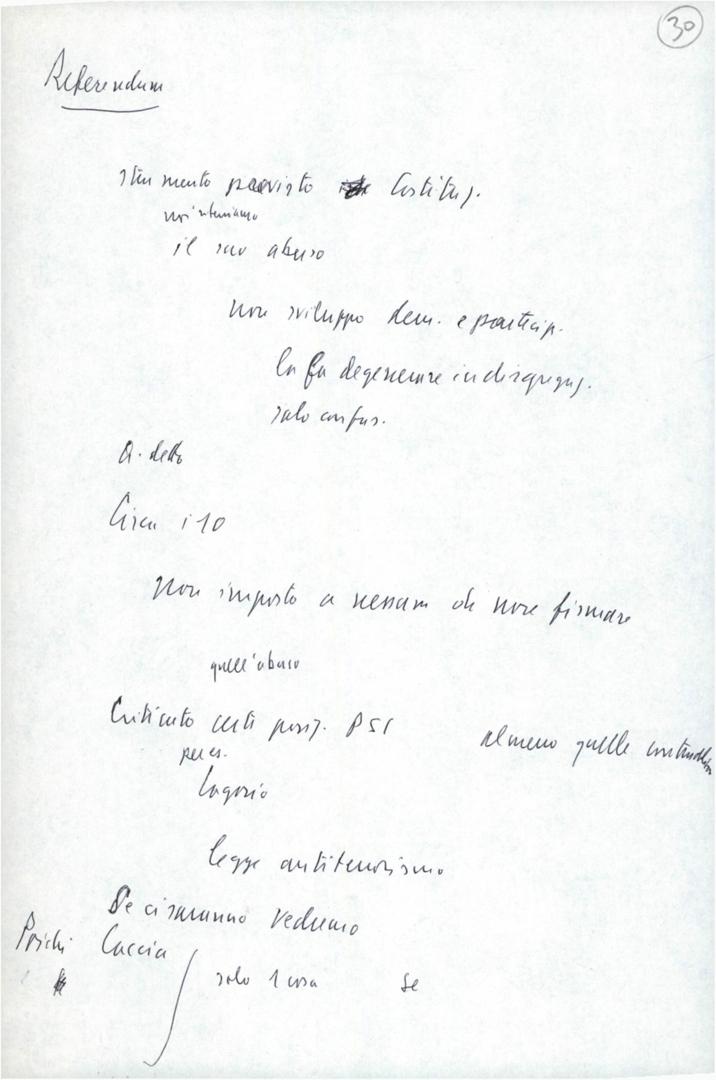 30
Referendum
strumento previsto Costituz.
noi riteniamo
il suo abuso
non sviluppo dem. e particip.
la fa degenerare in disgregaz.
solo confus.
detto
Circa i 10
Non imposto a nessuno di non firmare
quell'abuso
Criticato certi posiz. PSI almeno quelle
per es.
Lagorio
legge antiterrorismo
Se ci saranno vedremo
Poiché Caccia
solo 1 cosa Se